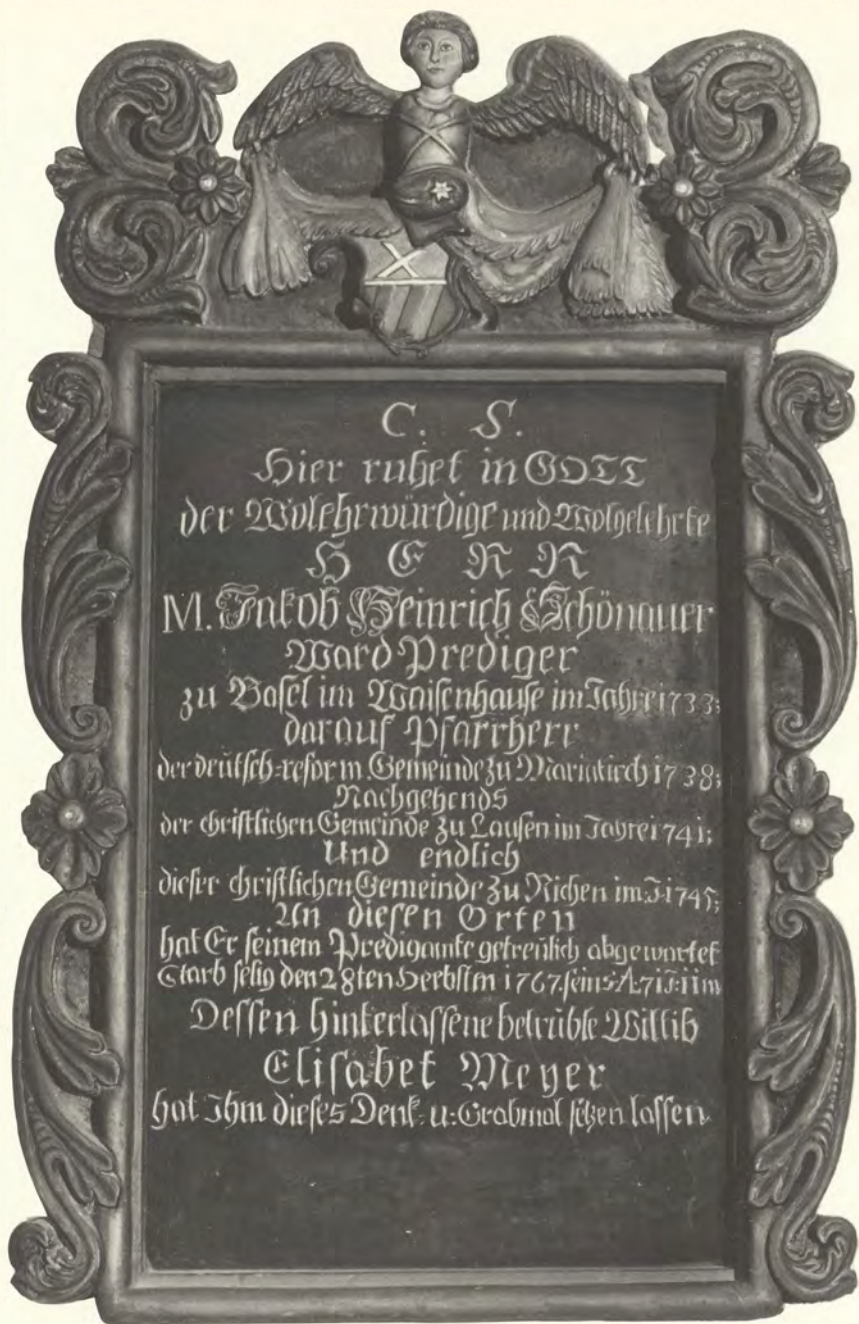 C. S.
Hier ruhet in GOTT
der Wolehrwürdige und Wolgelehrte
HERR
M. Jakob Heinrich Schönauer
Ward Prediger
zu Basel im Waisenhause im Jahre 1733;
darauf Pfarrherr
der deütsch=reform. Gemeinde zu Mariakirch 1738;
Nachgehends
der christlichen Gemeinde zu Laufen im Jahre 1741;
Und endlich
dieser christlichen Gemeinde zu Richen im J. 1745;
An diesen Orten
hat Er seinem Predigamte getreülich abgewartet
Starb selig den 28ten Herbstm 1767. seins A: 71 J: 11 m
Dessen hinterlassene betrübte Wittib
Elisabet Meyer
hat Ihm dieses Denk= u: Grabmal setzen lassen